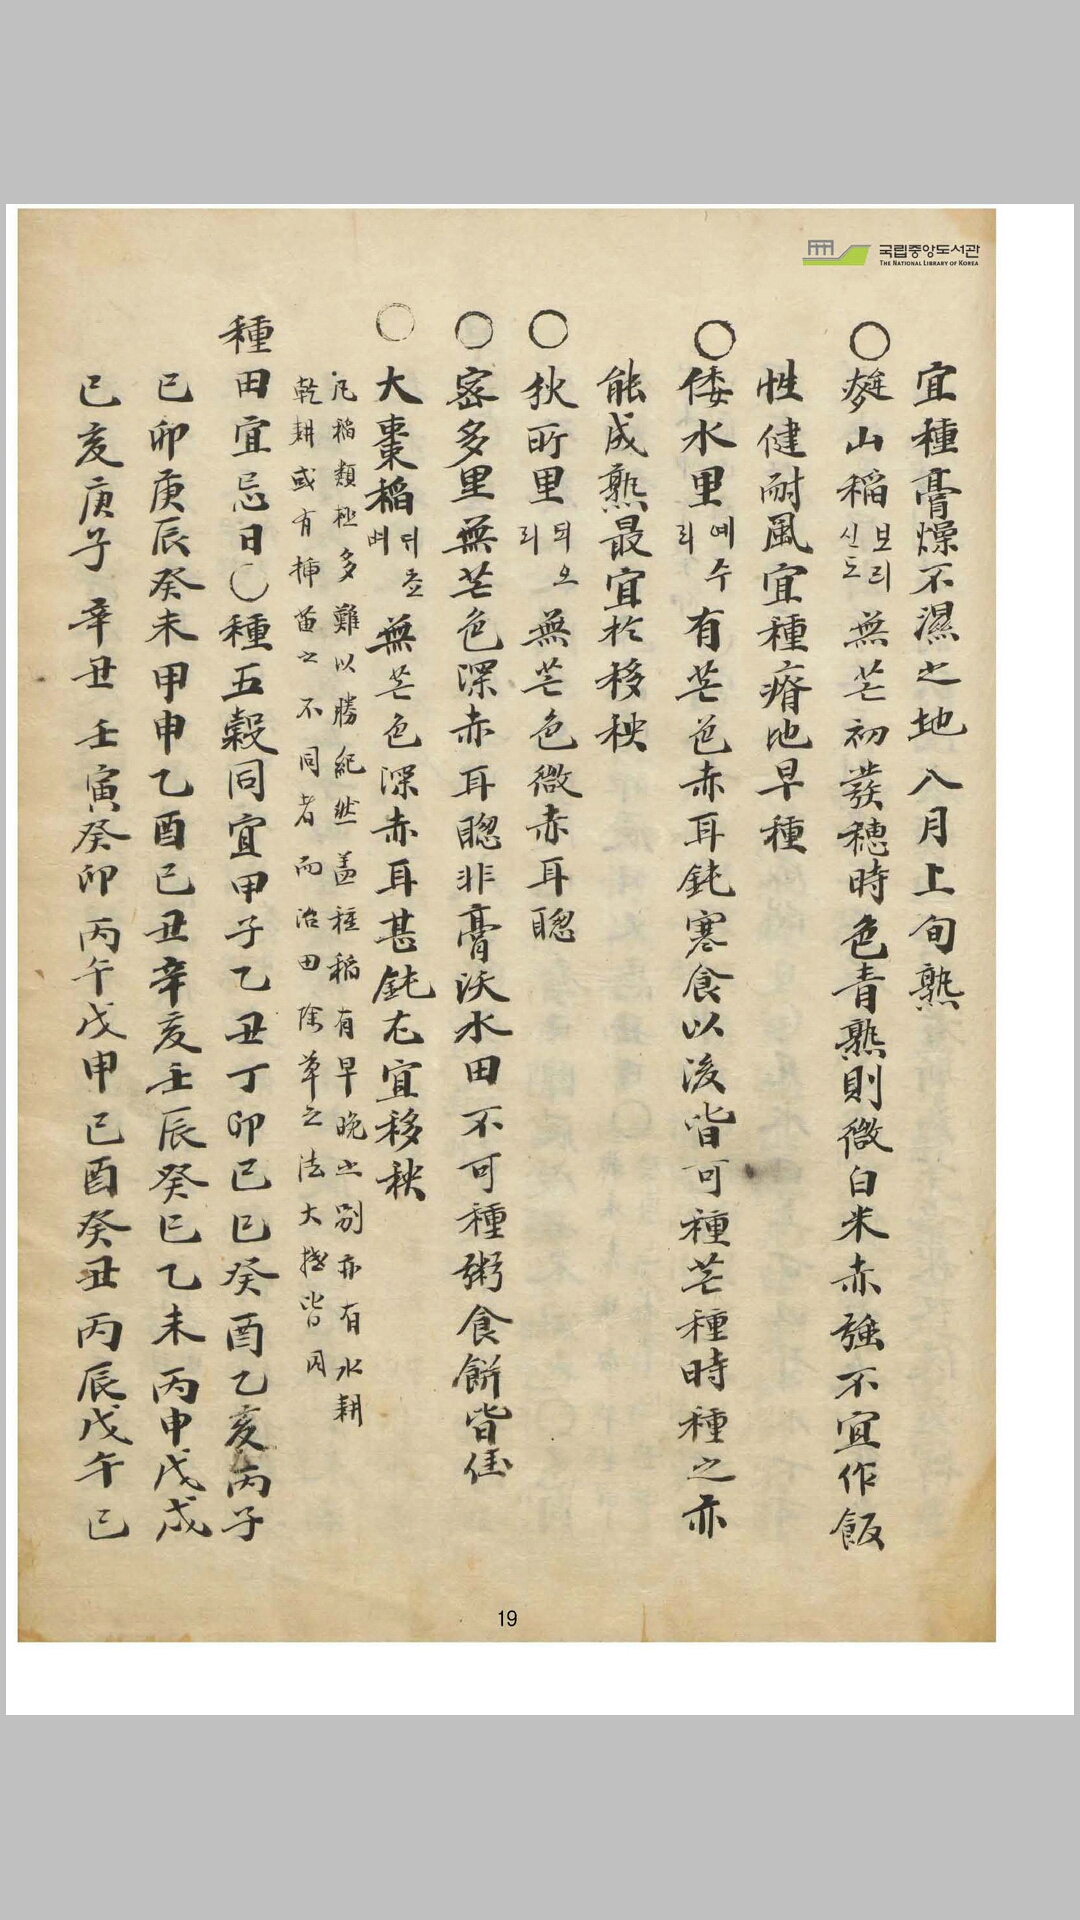 국립중앙도서관
THE NATIONAL LIBRARY OF KOREA
宜種膏燥不濕之地八月上旬熟
○ 山稻 보리산도 無芒初發穗時色青熟則微白米赤強不宜作飯
性健耐風宜種瘠地早種
○倭水里 예수리 有芒色赤耳鈍寒食以後皆可種芒種時種之亦
能成熟最宜於移秧
○狄所里 되오리 無芒色微赤耳聰
○密多里無芒色深赤耳聰非膏沃水田不可種粥食餠皆佳
○大棗稻 벼 無芒色深赤耳甚鈍尤宜移秧
凡稻類極多難以勝紀然盖種稻有早晩之別亦有水耕
乾耕或有揷苗之不同者而治田除草之法大抵皆同
種田宜忌日○種五穀同宜甲子乙丑丁卯己巳癸酉乙亥丙子
己卯庚辰癸未甲申乙酉己丑辛亥壬辰癸巳乙未丙申戊戌
己亥庚子辛丑壬寅癸卯丙午戊申己酉癸丑丙辰戊午己
19